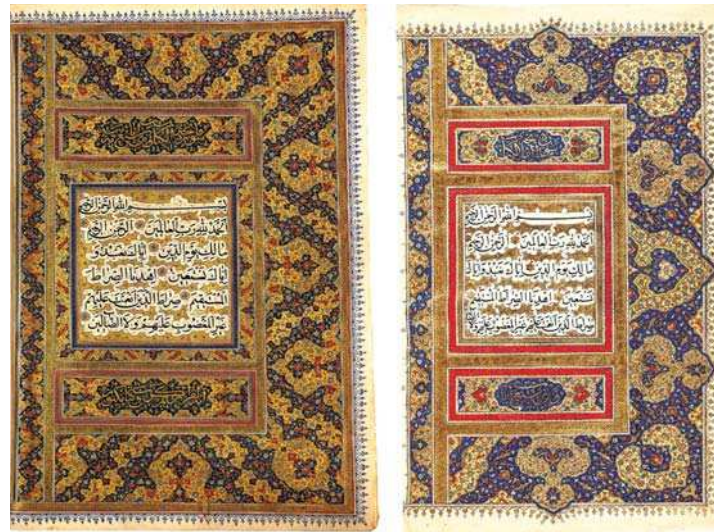 بسم الله الرحمن الرحيم
الحمد لله رب العالمين الرحمن الرحيم
مالك يوم الدين اياك نعبد واياك
نستعين اهدنا الصراط المستقيم
صراط الذين انعمت عليهم غير المغضوب عليهم ولا
بسم الله الرحمن الرحيم
الحمد لله رب العالمين الرحمن الرحيم
مالك يوم الدين اياك نعبد و
اياك نستعين اهدنا الصراط
المستقيم صراط الذين انعمت عليهم
غير المغضوب عليهم ولا الضالين